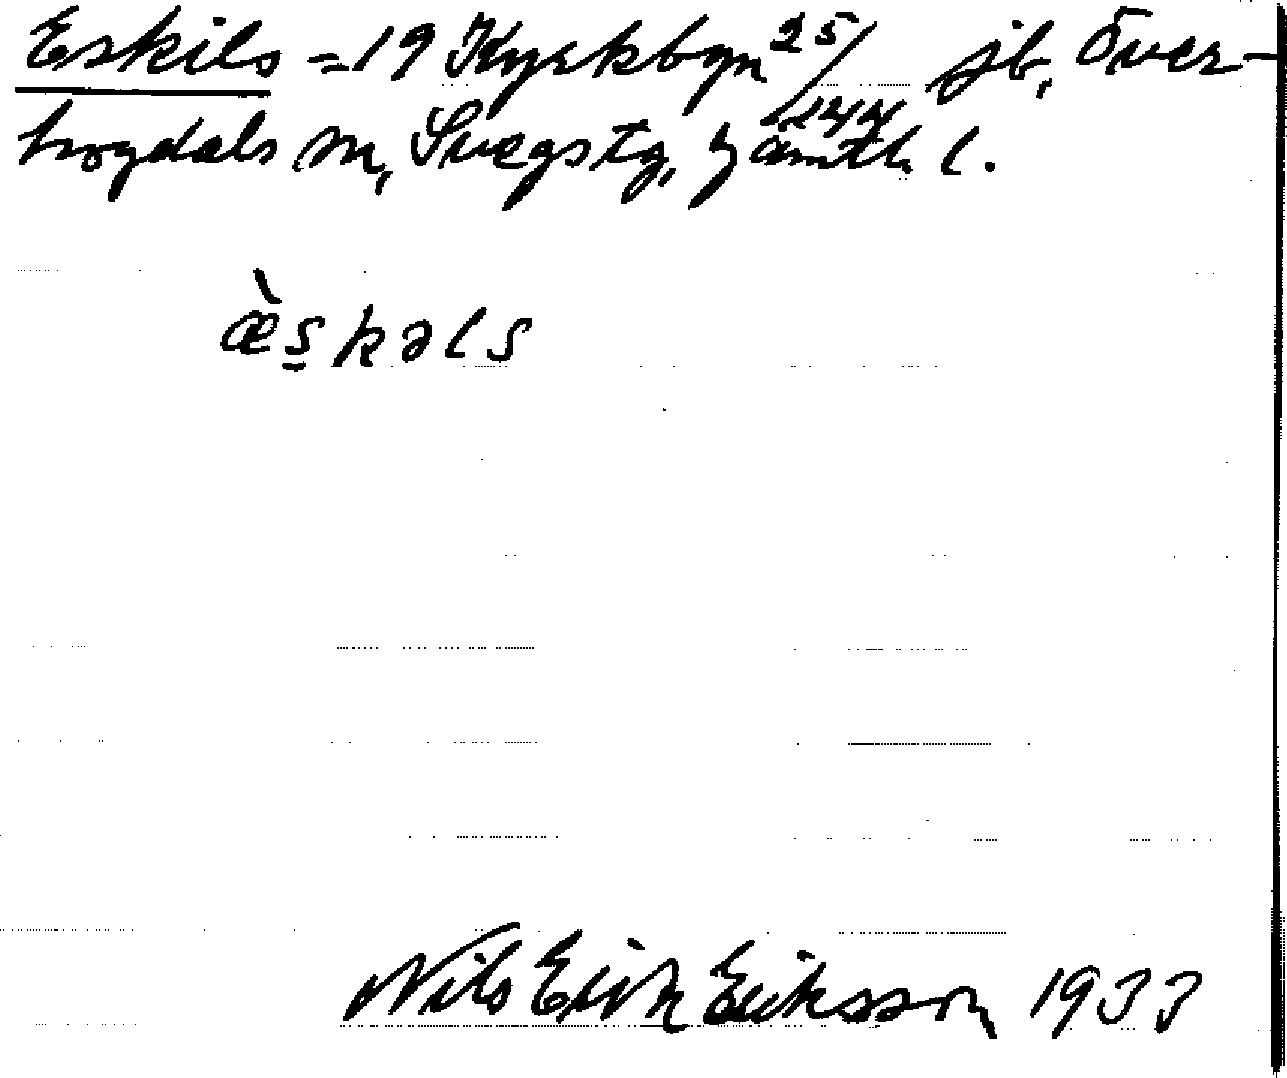 Eskils = 19 Kyrkbyn 25/144 jb, Över-
hogdals sn, Svegs tg, Jämtl. l.
æ̀s̠kəls
Nils Erik Eriksson 1933